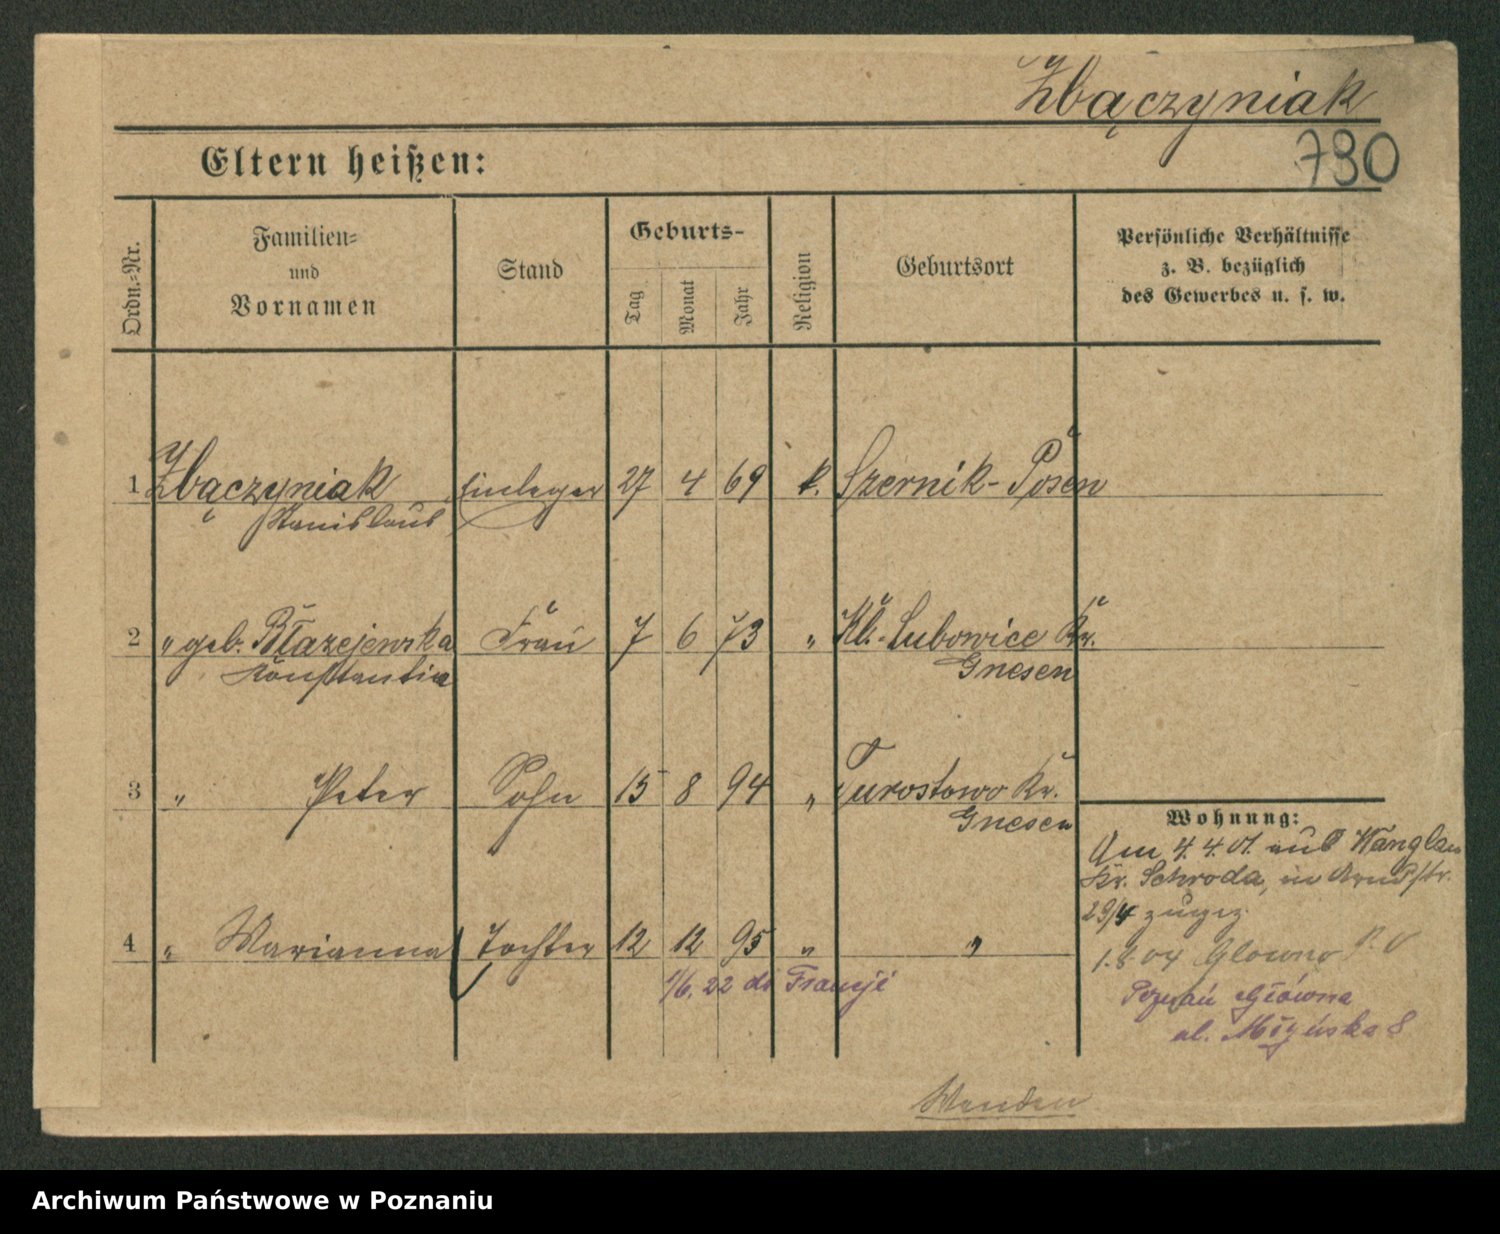 Zbączyniak
790
Eltern heißen:
Ordn.-Nr.
Familien-
und
Vornamen
Stand
Geburts-
Tag
Monat
Jahr
Religion
Geburtsort
Persönliche Verhältnisse
z. B. bezüglich
des Gewerbes u. s. w.
1 Zbączyniak Einleger 27 4 69 k. Szernik-Posen
Stanislaus
2 " geb. Błazejewska Frau 7 6 73 " Kl.-Lubowice Kr.
Konstantia Gnesen
3 " Peter Sohn 15 8 94 " Turostowo Kr.
Gnesen
4 " Marianna Tochter 12 12 95 " "
1/6. 22 do Francji
Wohnung:
Am 4. 4. 01. aus
Kr. Schroda, in
29/4 zugez.
1. 8 04 Glowno
Poznań Główna
ul. 8
Wenden
Archiwum Państwowe w Poznaniu